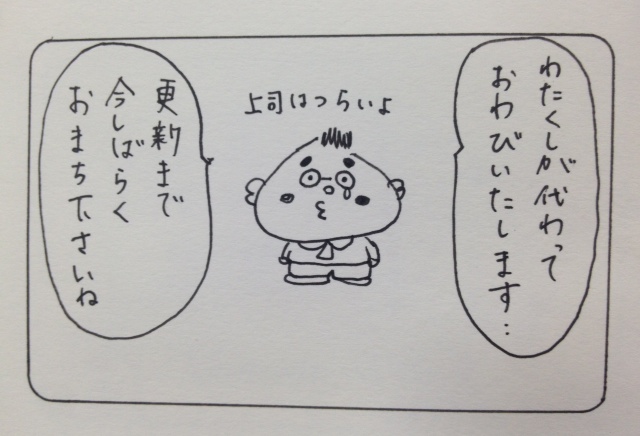 わたくしが代わって
おわびいたします…
上司はつらいよ
更新まで
今しばらく
おまち下さいね